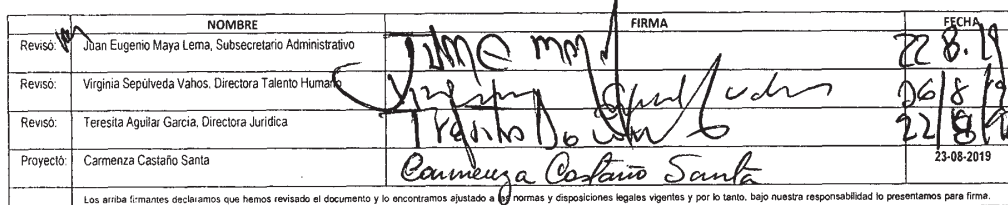 NOMBRE FIRMA FECHA
Revisó: Juan Eugenio Maya Lema, Subsecretario Administrativo 22 8.19
Revisó: Virginia Sepúlveda Vahos, Directora Talento Humano Virginia Sepulveda Vahos 26/8/19
Revisó: Teresita Aguilar García, Directora Jurídica 22/8/19
Proyectó: Carmenza Castaño Santa Carmenza Castaño Santa 23-08-2019
Los arriba firmantes declaramos que hemos revisado el documento y lo encontramos ajustado a las normas y disposiciones legales vigentes y por lo tanto, bajo nuestra responsabilidad lo presentamos para firma.